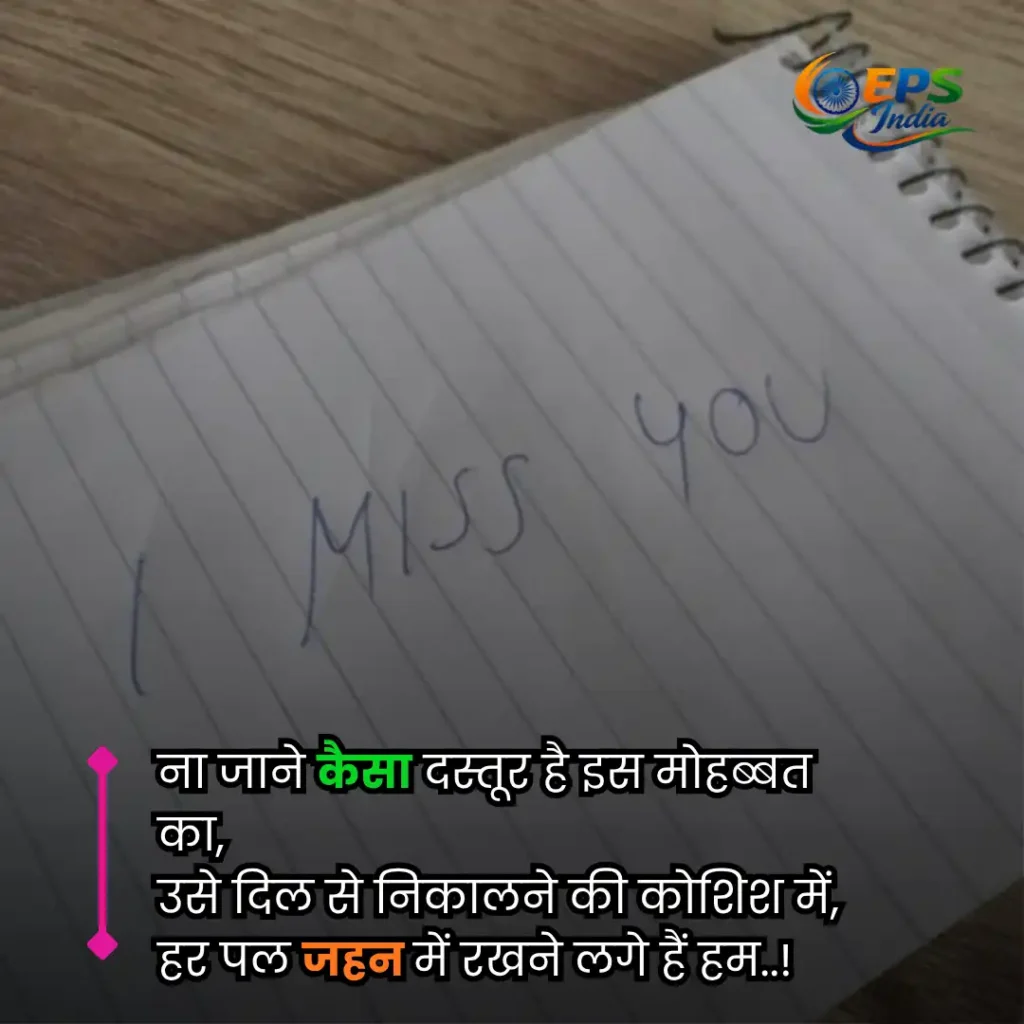 EPS
India
I MISS YOU
ना जाने कैसा दस्तूर है इस मोहब्बत
का,
उसे दिल से निकालने की कोशिश में,
हर पल जहन में रखने लगे हैं हम..!